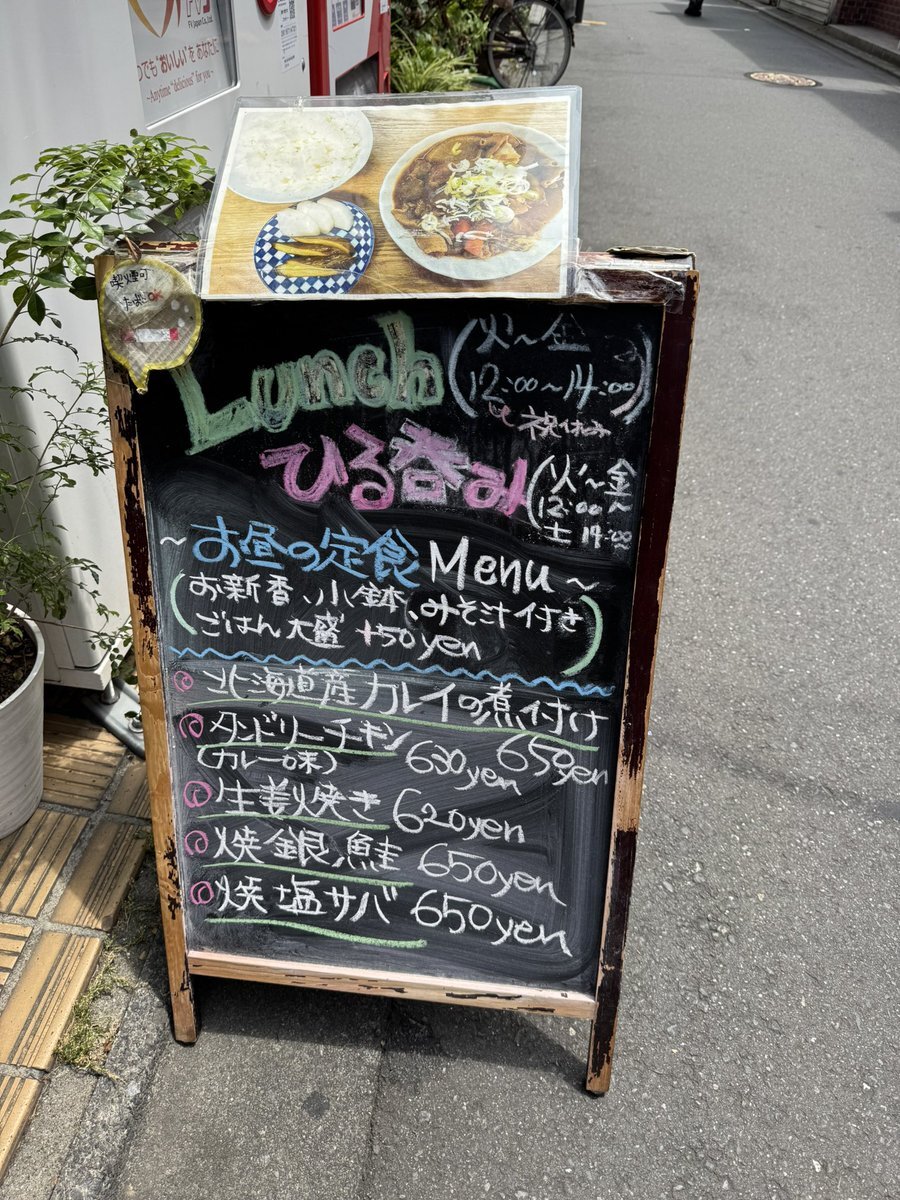 FV Japan Co., Ltd.
いつでも"おいしい"を あなたに
~Anytime "delicious" for you~
喫煙可
たばこOK
Lunch
(火~金
12:00~14:00)
祝休み
ひる呑み
(火~金
12:00~
土 14:00~
~お昼の定食 Menu~
(お新香、小鉢、みそ汁付き
ごはん大盛 +50yen)
北海道産カレイの煮付け
650yen
タンドリーチキン
(カレー味) 630yen
生姜焼き 620yen
焼銀鮭 650yen
焼塩サバ 650yen